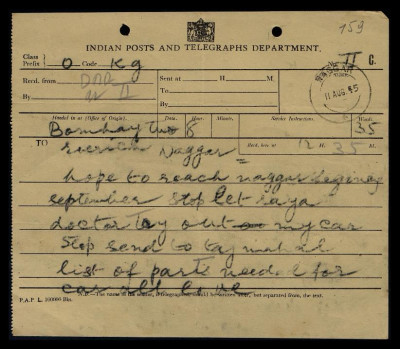 159
INDIAN POSTS AND TELEGRAPHS DEPARTMENT.
Class
Prefix } O Code Kg II C.
Recd. from Sent at H. M.
By By
NAGGAR
11 AUG. 45
Handed in at (Office of Origin). Date. Hour. Minute. Service Instructions. Words.
Bombay two 8 35
TO Recd. here at 12 H. 35 M.
roerich Naggar =
hope to reach naggar begining
september stop let raya
doctor try out my car
stop send to taj mahal
list of parts needed for
car all love
N.B.—The name of the sender, if telegraphed, should be written after, but separated from, the text.
P.A.P L.